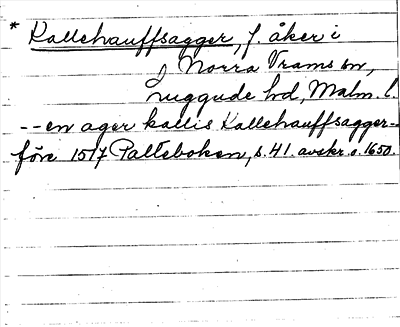 * Kallehauffsagger, f. åker i
Norra Vrams sn,
Luggude hd, Malm. l.
--en ager kallis Kallehauffsagger--
före 1517 Palteboken, s. 41. avskr. o. 1650.